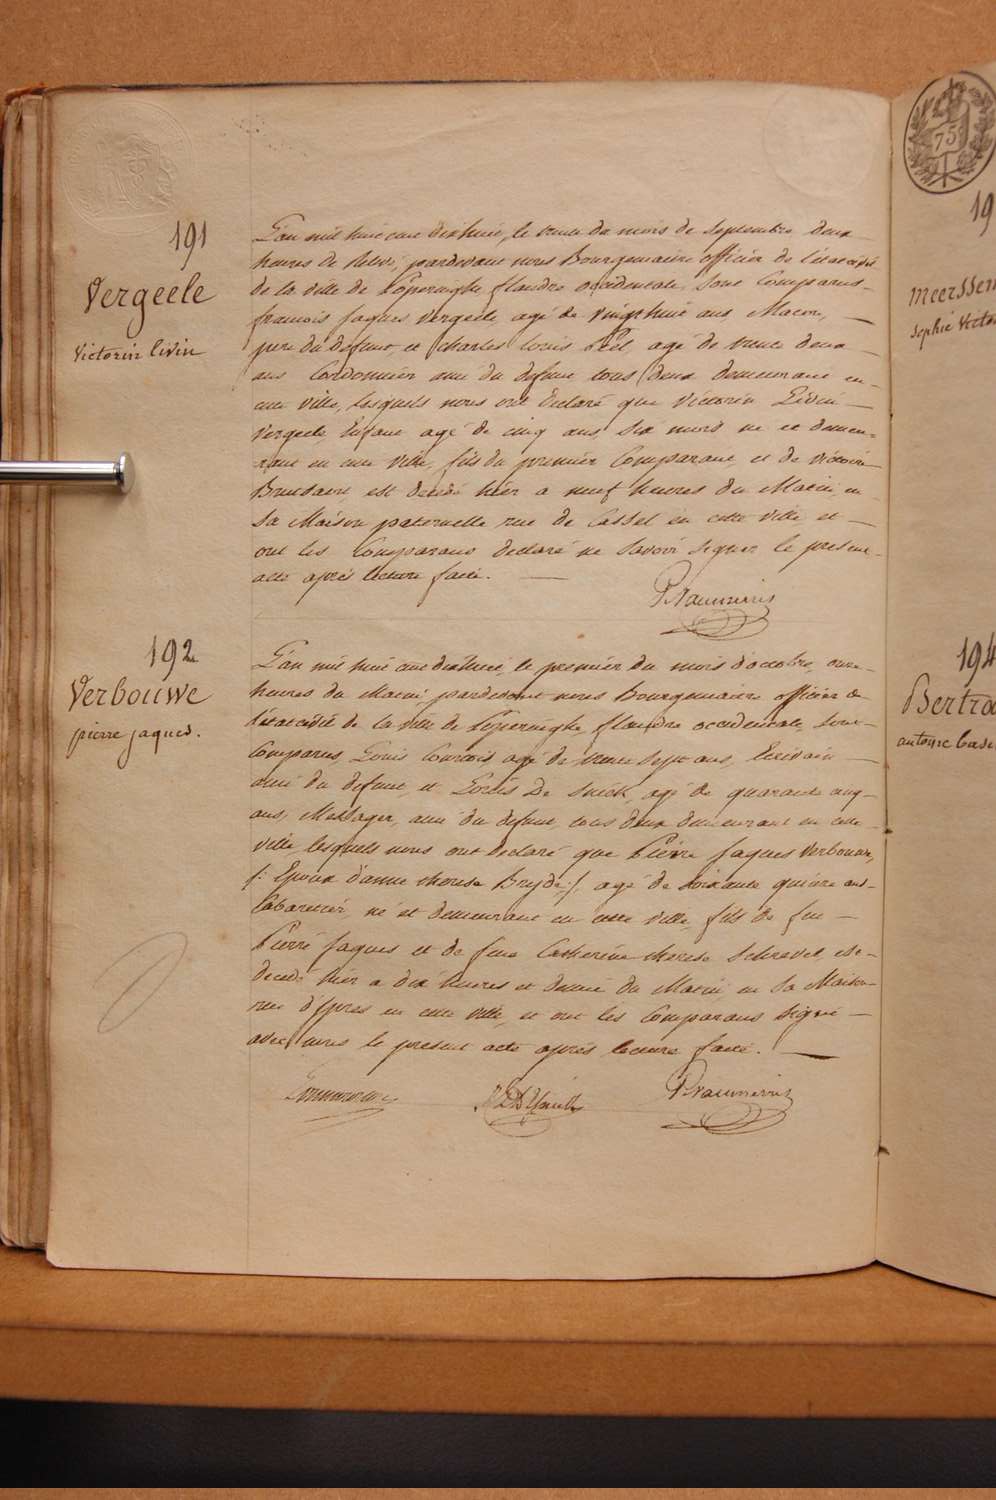 191
Vergeele
Victorin livin
L'an mil huit cent dixhuit, le trente du mois de Septembre deux
heures de relevé, pardevant nous Bourguemaitre officier de l'état civil
de la ville de Poperinghe flandre occidentale, sont Comparus
francois Jaques Vergeele, agé de vingthuit ans Macon,
pere du defunt, et Charles Louis agé de trente deux
ans Cordonnier ami du defunt tous deux demeurant en
cette ville, lesquels nous ont declaré que Victorin Livin
Vergeele Enfant agé de cinq ans, six mois né et demeu-
rant en cette ville, fils du premier Comparant, et de victoire
est decedé hier a neuf heures du Matin, en
sa Maison paternelle rue de Cassel en cette ville et
ont les Comparans declaré ne savoir signer le present
acte après lecture faite.
192
Verbouwe
pierre jaques.
L'an mil huit cent dixhuit, le premier du mois d'octobre, onze
heures du Matin, pardevant nous Bourguemaitre officier de
l'état civil de la ville de Poperinghe flandre occidentale, sont
Comparus, Louis Courtois agé de trente sept ans, Ecrivain
ami du defunt, et Louis De agé de quarante cinq
ans, Messager, ami du defunt, tous deux demeurant en cette
ville, lesquels nous ont declaré que Pierre Jaques Verbouwe,
/: Epoux d'anne therese Bryde :/ agé de soixante quinze ans
Cabaretier, né et demeurant en cette ville, fils de feu
Pierre Jaques et de feue Catherine therese Schravel, est
decedé hier a dix heures et demie du Matin en sa Maison
rue d'Ypres en cette ville, et ont les Comparans signé
avec nous le present acte après lecture faite.
75
19
Meerssem
Sophie Victor
194
Bertra
antoine